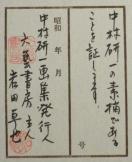 中村研一の素描である
ことを証します
号
昭和 年 月
中村研一画集発行人
大藝書房主人
岩田卓也